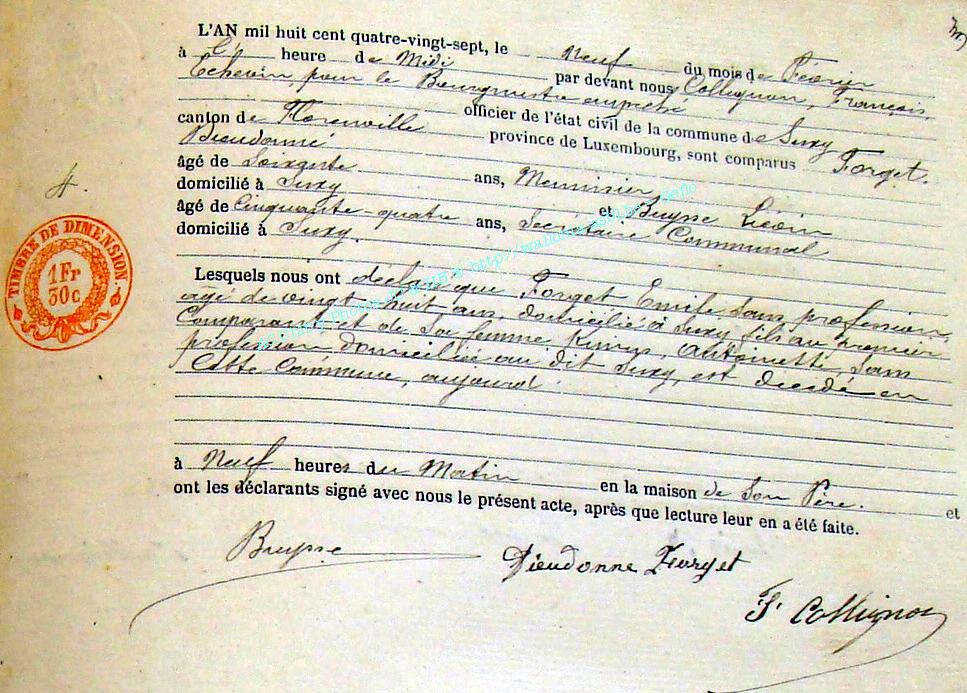 L'AN mil huit cent quatre-vingt-sept, le Neuf du mois de Février
à heure de Midi par devant nous Collignon, François,
Echevin, pour le Bourgmestre empêché
officier de l'état civil de la commune de Suxy
canton de Florenville province de Luxembourg, sont comparus Forget.
Dieudonné
âgé de Soixante ans, Meunisier
domicilié à Suxy et Buysse Liévin
âgé de Cinquante-quatre ans, Secrétaire Communal
domicilié à Suxy.
Lesquels nous ont déclaré que Forget Emile, Sans profession,
âgé de vingt huit ans, domicilié à Suxy fils au premier
Comparant et de Sa femme Antoinette, Sans
profession domiciliée au dit Suxy, est décédé en
Cette Commune, aujourd.
à Neuf heures du Matin en la maison de Son Père. et
ont les déclarants signé avec nous le présent acte, après que lecture leur en a été faite.
Buysse
Dieudonne Forget
F. Collignon
4.
TIMBRE DE DIMENSION
1Fr
30c